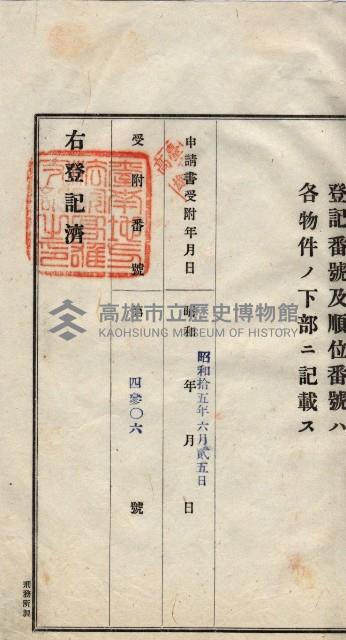 登記番號及順位番號ハ
各物件ノ下部ニ記載ス
申請書受附年月日
昭和 年 月 日
昭和拾五年六月貳五日
受附番號
第 號
四參〇六
右登記濟
高雄市立歷史博物館
KAOHSIUNG MUSEUM OF HISTORY